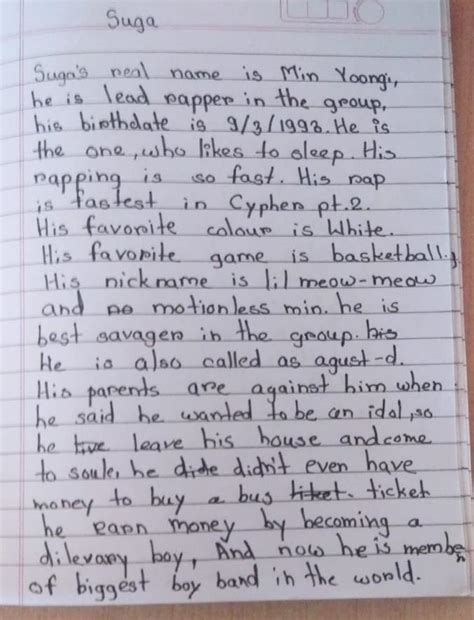 Suga
Suga's real name is Min Yoongi,
he is lead rapper in the group,
his birthdate is 9/3/1993. He is
the one, who likes to sleep. His
rapping is so fast. His rap
is fastest in Cypher pt.2.
His favorite colour is White.
His favorite game is basketball.
His nickname is lil meow-meow
and motionless min. he is
best savager in the group. his
He is also called as agust-d.
His parents are against him when
he said he wanted to be an idol, so
he leave his house and come
to soule, he didn't even have
money to buy a bus ticket. ticket
he earn money by becoming a
dilevary boy, And now he is member
of biggest boy band in the world.